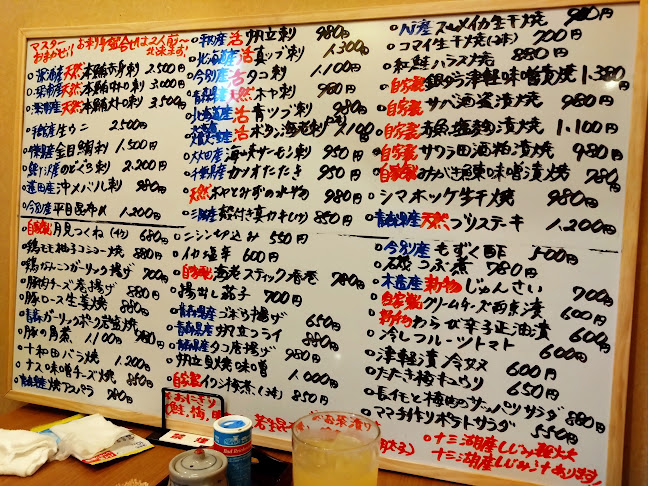 マスター
おまかせ!! お刺身盛合せは2人前〜
出来ます!
天然本鮪赤身刺 2.500円
天然本鮪中トロ刺 3.000円
天然本鮪大トロ刺 3.500円
生ウニ 2500円
金目鯛刺 1.500円
のどぐろ刺 2.200円
沖メバル刺 980円
今別産平目昆布〆 1.200円
自家製月見つくね 680円
鶏モモ柚子コショー焼 880円
鶏なんこつガーリック揚げ 700円
チーズ巻揚げ 880円
豚ロース生姜焼 880円
青森ガーリックポーク岩塩焼
豚の角煮 1.100円
十和田バラ焼 1.200円
ナス味噌チーズ焼 850円
焼アスパラ
活帆立刺 980円
北海道産活真ツブ刺 1.300円
今別産活タコ刺 1.100円
天然ホヤ刺 980円
北海道産活青ツブ刺 980円
活ボタン海老刺 1.100円
海峡サーモン刺 950円
千葉県産カツオたたき 950円
天然ホヤとみずの水物 980円
殻付き真カキ 850円
ニシン切込み 550円
イカ塩辛 600円
自家製海老スティック春巻 780円
揚出し茄子 700円
青森県産ごぼう揚げ 650円
青森県産帆立フライ 880円
青森県産タコ唐揚げ 980円
帆立貝焼味噌 1.000円
自家製イワシ梅煮 850円
おにぎり
(鮭,梅,
お茶漬け
八戸産スルメイカ生干焼 980円
コマイ生干焼 700円
紅鮭ハラス焼 880円
自家製銀ダラ津軽味噌漬焼 1.380
自家製サバ酒盗漬焼 980円
自家製赤魚塩麹漬焼 1.100円
自家製サワラ田酒粕漬焼 980円
自家製みがきにしん味噌漬焼 780円
シマホッケ生干焼 980円
青森県産天然ブリステーキ 1.200円
今別産もずく酢 500円
磯つぶ煮 780円
木造産新物じゅんさい 700円
自家製クリームチーズ西京漬 600円
新物わらび辛子正油漬 600円
冷しフルーツトマト 600円
津軽漬冷奴 600円
たたき梅キュウリ 650円
長イモと梅のサッパリサラダ 880円
ママ手作りポテトサラダ 550円
十三湖産しじみ
十三湖産しじみ汁あります!